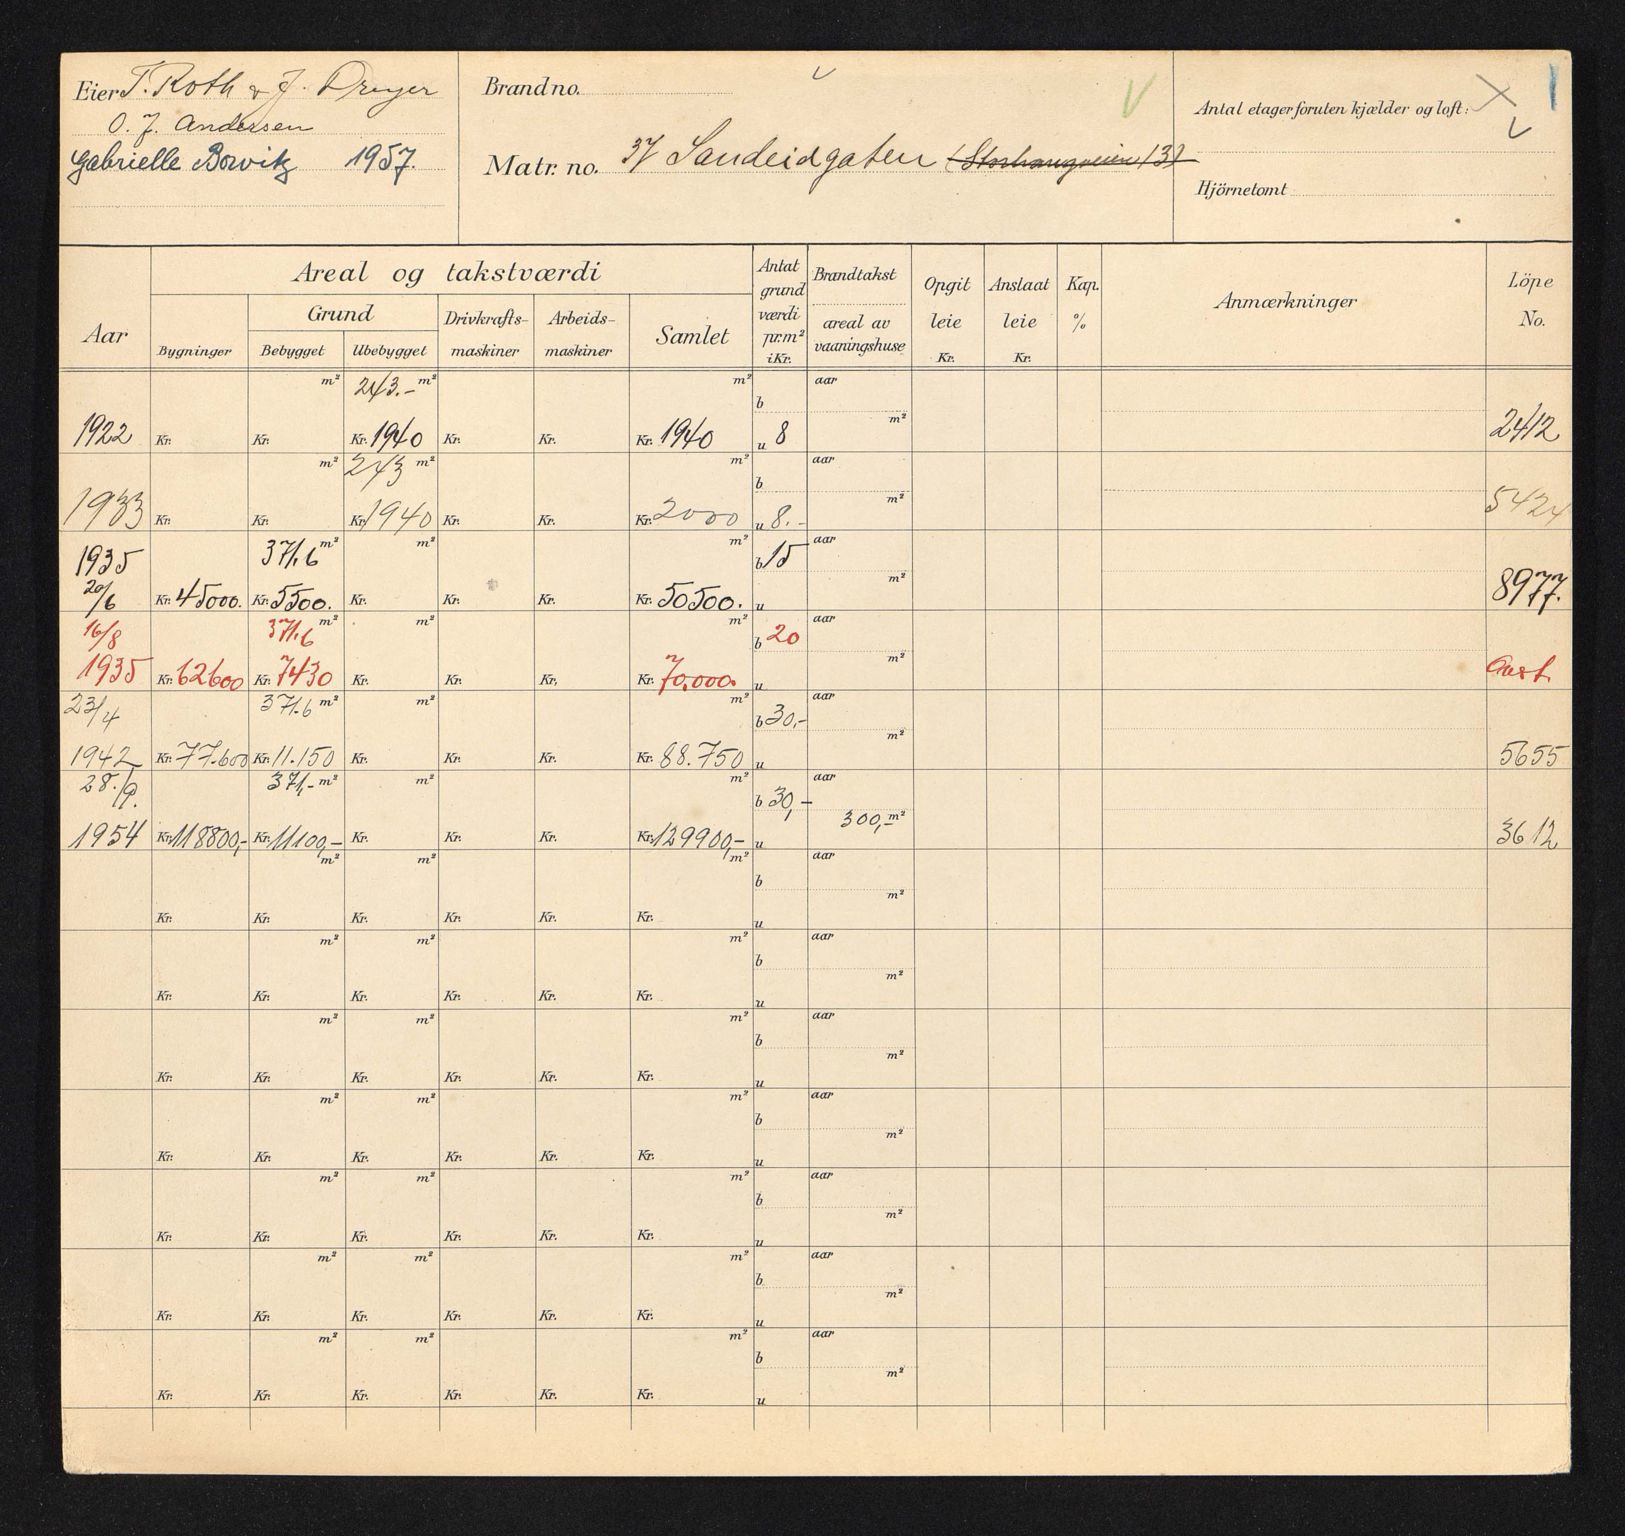 Eier T. Roth & J. Dreyer
O. J. Andersen
Gabrielle Borvik 1957.
Brand no.
Matr. no. 37 Sandeidgaten (Storhaugveien 13)
Antal etager foruten kjælder og loft:
Hjörnetomt
Aar
Areal og takstværdi
Bygninger
Grund
Bebygget Ubebygget
Drivkrafts-
maskiner
Arbeids-
maskiner
Samlet
Antat
grund
værdi
pr.m²
i Kr.
Brandtakst
areal av
vaaningshuse
Opgit
leie
Kr.
Anslaat
leie
Kr.
Kap.
%
Anmærkninger
Löpe
No.
m² 243.- m² m² b aar
1922 Kr. Kr. Kr. 1940 Kr. Kr. Kr. 1940 u 8 m² 2412
m² 243 m² m² b aar
1933 Kr. Kr. Kr. 1940 Kr. Kr. Kr. 2000 u 8.- m² 5424
1935 371.6 m² m² m² b 15 aar
20/6 Kr. 45000. Kr. 5500. Kr. Kr. Kr. Kr. 50500. u m² 8977.
16/8 371.6 m² m² m² b 20 aar
1935 Kr. 62600 Kr. 7430 Kr. Kr. Kr. Kr. 70.000. u m²
23/4 371.6 m² m² m² b 30,- aar
1942 Kr. 77.600 Kr. 11.150 Kr. Kr. Kr. Kr. 88.750 u m² 5655
28./9. 371,- m² m² m² b 30,- aar
1954 Kr. 118800,- Kr. 11100,- Kr. Kr. Kr. Kr. 129900,- u 300,- m² 3612
m² m² m² b aar
Kr. Kr. Kr. Kr. Kr. Kr. u m²
m² m² m² b aar
Kr. Kr. Kr. Kr. Kr. Kr. u m²
m² m² m² b aar
Kr. Kr. Kr. Kr. Kr. Kr. u m²
m² m² m² b aar
Kr. Kr. Kr. Kr. Kr. Kr. u m²
m² m² m² b aar
Kr. Kr. Kr. Kr. Kr. Kr. u m²
m² m² m² b aar
Kr. Kr. Kr. Kr. Kr. Kr. u m²
m² m² m² b aar
Kr. Kr. Kr. Kr. Kr. Kr. u m²